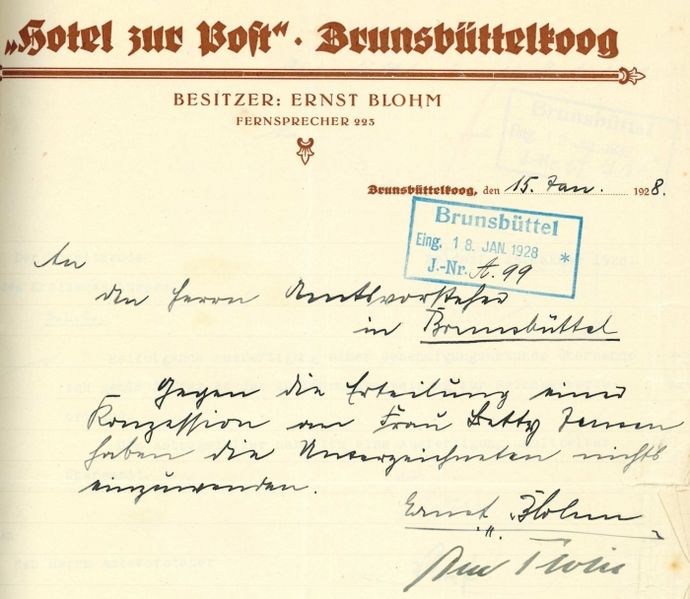 „Hotel zur Post“ · Brunsbüttelkoog
BESITZER: ERNST BLOHM
FERNSPRECHER 223
Brunsbüttelkoog, den 15. Jan. 1928.
Brunsbüttel
Eing. 18. JAN. 1928 *
J.-Nr. A. 99
An
den Herrn Amtsvorsteher
in Brunsbüttel
Gegen die Erteilung einer
Konzession an Frau Betty Jensen
haben die Unterzeichneten nichts
einzuwenden.
Ernst Blohm